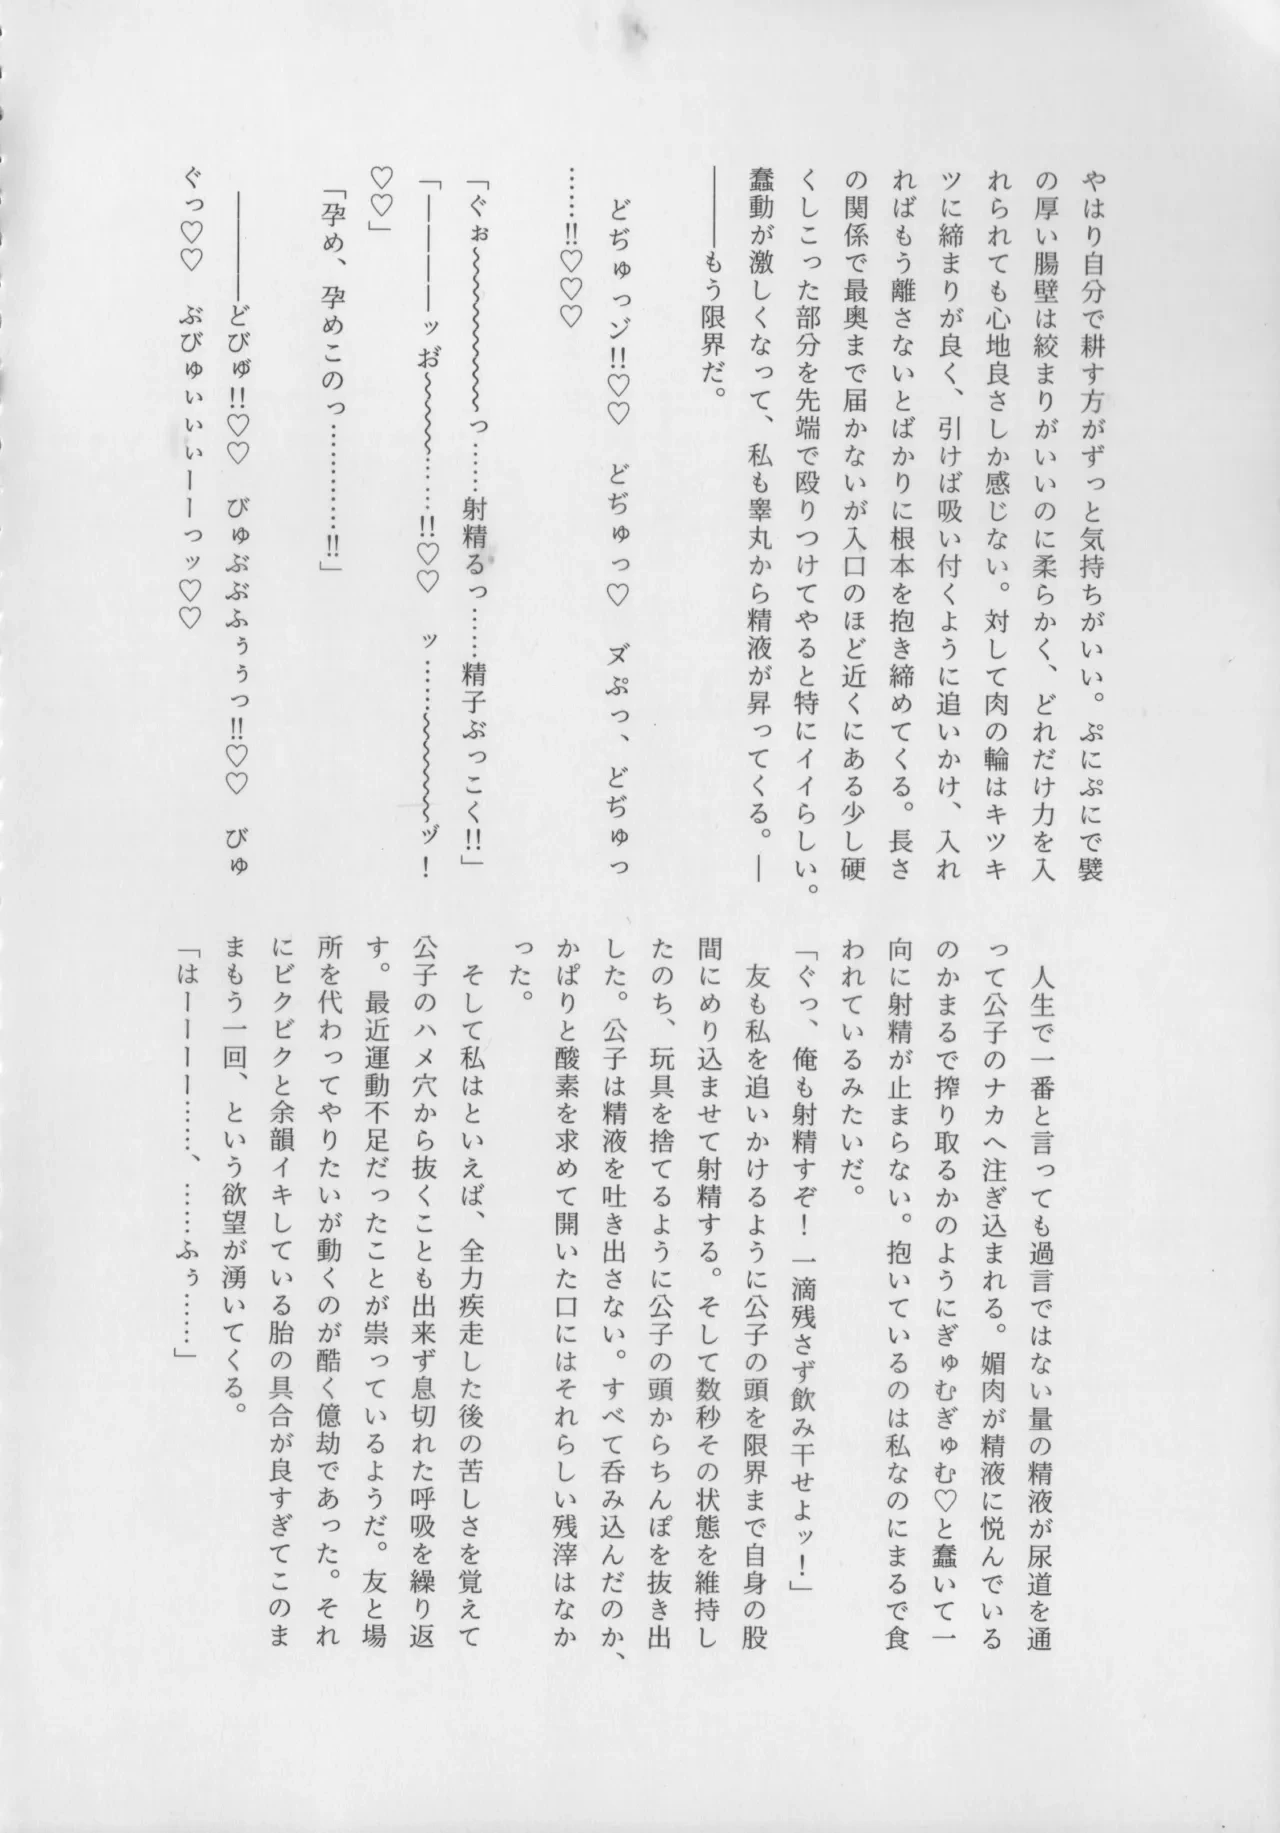 やはり自分で耕す方がずっと気持ちがいい。ぷにぷにで襞
の厚い腸壁は絞まりがいいのに柔らかく、どれだけ力を入
れられても心地良さしか感じない。対して肉の輪はキツキ
ツに締まりが良く、引けば吸い付くように追いかけ、入れ
ればもう離さないとばかりに根本を抱き締めてくる。長さ
の関係で最奥まで届かないが入口のほど近くにある少し硬
くしこった部分を先端で殴りつけてやると特にイイらしい。
蠢動が激しくなって、私も睾丸から精液が昇ってくる。―
―――もう限界だ。
どぢゅっヅ!!♡♡　どぢゅっ♡　ヌ゛ぷっ、どぢゅっ
……!!♡♡♡
「ぐぉ〜〜〜〜〜〜っ……射精るっ……精子ぶっこく!!」
「ーーーーッお゛〜〜〜〜……!!♡♡　ッ……〜〜〜〜〜ヅ！
♡♡」
「孕め、孕めこのっ…………!!」
――――どびゅ゛!!♡♡　びゅぶぶふぅぅっ!!♡♡　びゅ
ぐっ♡♡　ぶびゅぃぃぃーーーっッ♡♡
人生で一番と言っても過言ではない量の精液が尿道を通
って公子のナカへ注ぎ込まれる。媚肉が精液に悦んでいる
のかまるで搾り取るかのようにぎゅむぎゅむ♡と蠢いて一
向に射精が止まらない。抱いているのは私なのにまるで食
われているみたいだ。
「ぐっ、俺も射精すぞ！一滴残さず飲み干せよッ！」
友も私を追いかけるように公子の頭を限界まで自身の股
間にめり込ませて射精する。そして数秒その状態を維持し
たのち、玩具を捨てるように公子の頭からちんぽを抜き出
した。公子は精液を吐き出さない。すべて呑み込んだのか、
かぱりと酸素を求めて開いた口にはそれらしい残滓はなか
った。
そして私はといえば、全力疾走した後の苦しさを覚えて
公子のハメ穴から抜くことも出来ず息切れた呼吸を繰り返
す。最近運動不足だったことが祟っているようだ。友と場
所を代わってやりたいが動くのが酷く億劫であった。それ
にビクビクと余韻イキしている胎の具合が良すぎてこのま
まもう一回、という欲望が湧いてくる。
「はーーーー……、……ふぅ……」